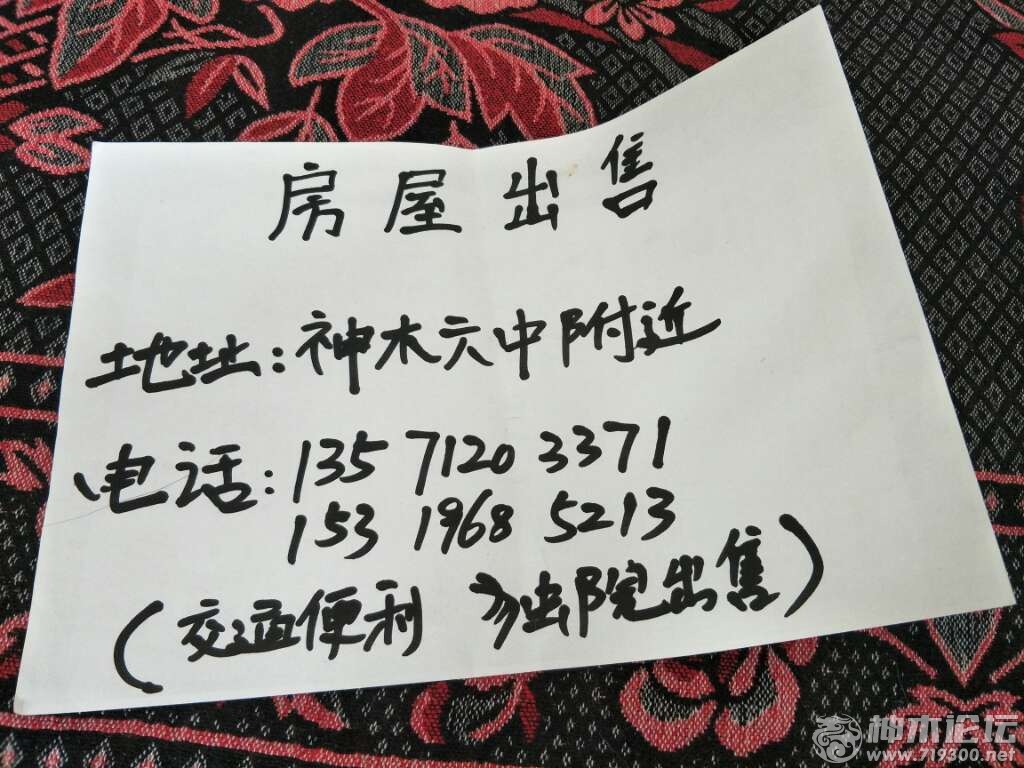 房屋出售
地址:神木六中附近
电话:135 7120 3371
153 1968 5213
(交通便利 独院出售)
神木论坛
www.719300.net